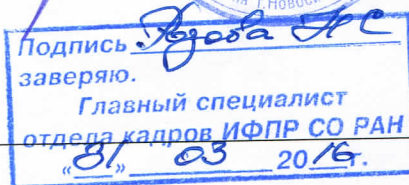 г. Новоси
Подпись Язова НС
заверяю.
Главный специалист
отдела кадров ИФПР СО РАН
«31» 03 2016г.